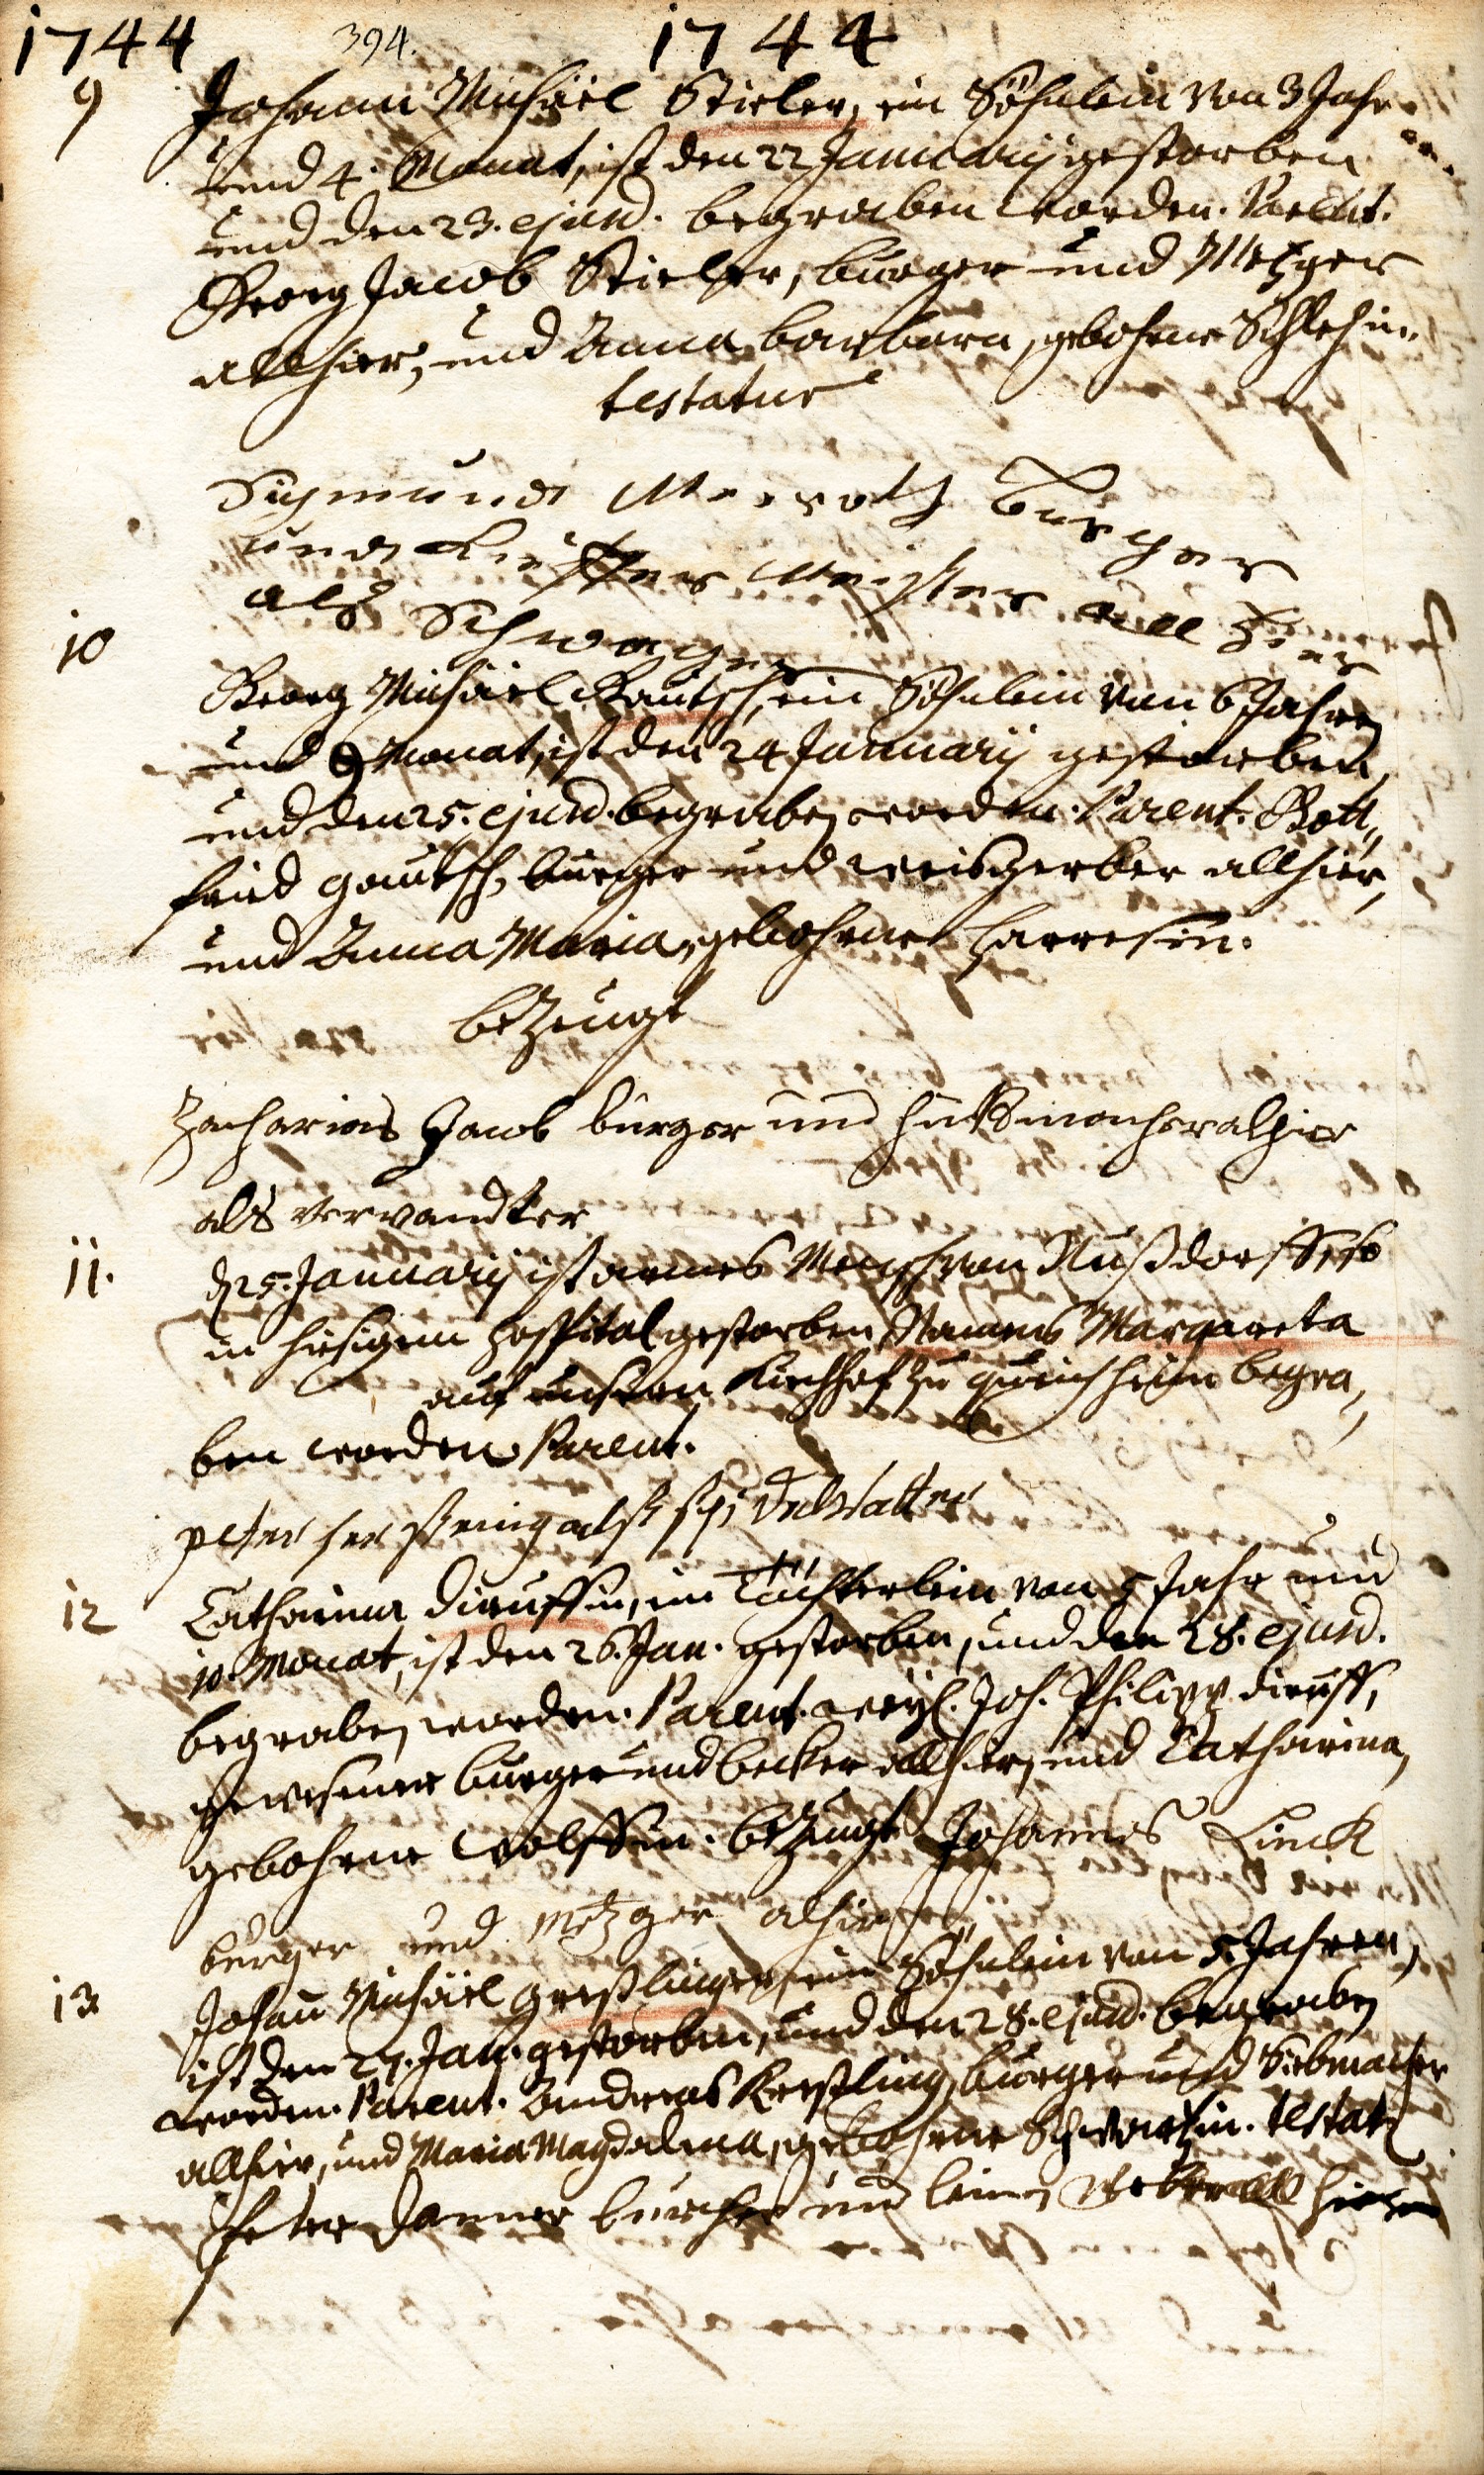 1744 394. 1744
9 Johann Michäel Stieler, ein Söhnlein von 3 Jahr
und 4. Monat, ist den 22 Januarij gestorben
und den 23. ejusd. begraben worden. Parent.
Georg Jacob Stieler, burger und Metzger
allhier, und Anna barbara, gebohrne
testatur
Sigmund burger
und Kieffer Meister all hier
als Schwager
10 Georg Michäel Kautsch, ein Söhnlein von 6 Jahren
und 9 Monat, ist den 24 Januarij gestorben,
und den 25. ejusd. begraben worden. Parent. Gott,,
fried gautsch, burger und weisgerber allhier,
und Anna Maria, gebohrne
bezeugt
Zacharias Jacob burger und hutmacher alhier
als verwandter
11. d 25. Januarij ist armes Mensch von Nußdorff, so
in hiesigem Hospital gestorben, Namens Margareta
auf unsern Kirchhof zu queichheim begra,,
ben worden Parent.
peter
12 Catharina dieruffin, ein Töchterlein von 5 Jahr und
10. Monat, ist den 26. Jan. gestorben, und den 28. ejusd.
begraben worden. Parent. weyl. Joh. Philipp dieruff,
gewesener burger und becker allhier, und Catharina,
gebohrne Wolffin. bezeugt Johannes Linck
burger und Metzger alhier
13 Johan Michäel greßlinger, ein Söhnlein von 5 Jahren,
ist den 27. Jan. gestorben, und den 28. ejusd. begraben
worden. Parent. Andreas Kreßling, burger und Siebmacher
allhier, und Maria Magdalena, gebohrne Schwartzin. testat
Peter Danner burcher und leinen Weber all hier